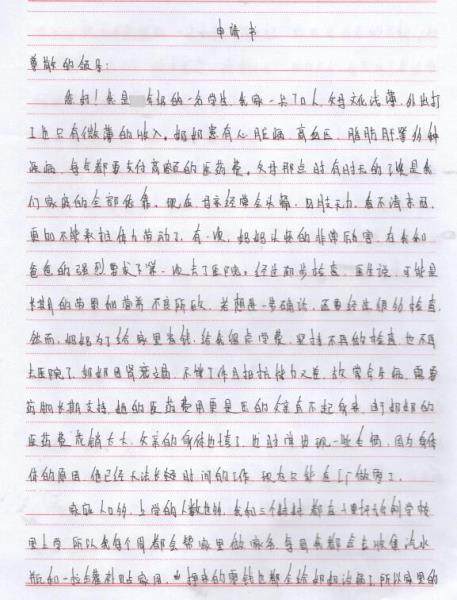 申请书
尊敬的领导:
您好!我是 学校的一名学生,我家一共10人,父母文化浅薄,外出打
工也只有微薄的收入。奶奶患有心脏病、高血压、脂肪肝等多种
疾病,每年都要支付高额的医药费。父母那点时有时无的工资是我
们家庭的全部依靠。现在,母亲经常会头痛,四肢无力,看不清东西,
更加不能承担体力劳动了。有一次,妈妈头疼的非常厉害,在我和
爸爸的强烈要求下第一次去了医院。经过初步检查,医生说,可能是
长期的劳累和营养不良所致,若想进一步确诊,还要经过很多检查,
然而,妈妈为了给家里省钱,给我留点学费,坚持不再检查,也不再
去医院了,奶奶因肾衰竭,不能工作且抵抗力又差,故常会生病,需要
药物长期支持,她的医药费用更是压的父亲直不起身来,由于奶奶的
医药费花销太大,父亲的身体也垮了,也时常出现一些长病,因为身体
体的原因,他已经无法长时间的工作,现在只能在工厂做零工。
家庭人口多,上学的人数也多,我们三个姊妹都在 学校
里上学,所以我每个周都会帮家里做家务,每周我都会去收集汽水
瓶和一些 补贴家用,也 把 的零钱也都会给奶奶治病了,所以家里的